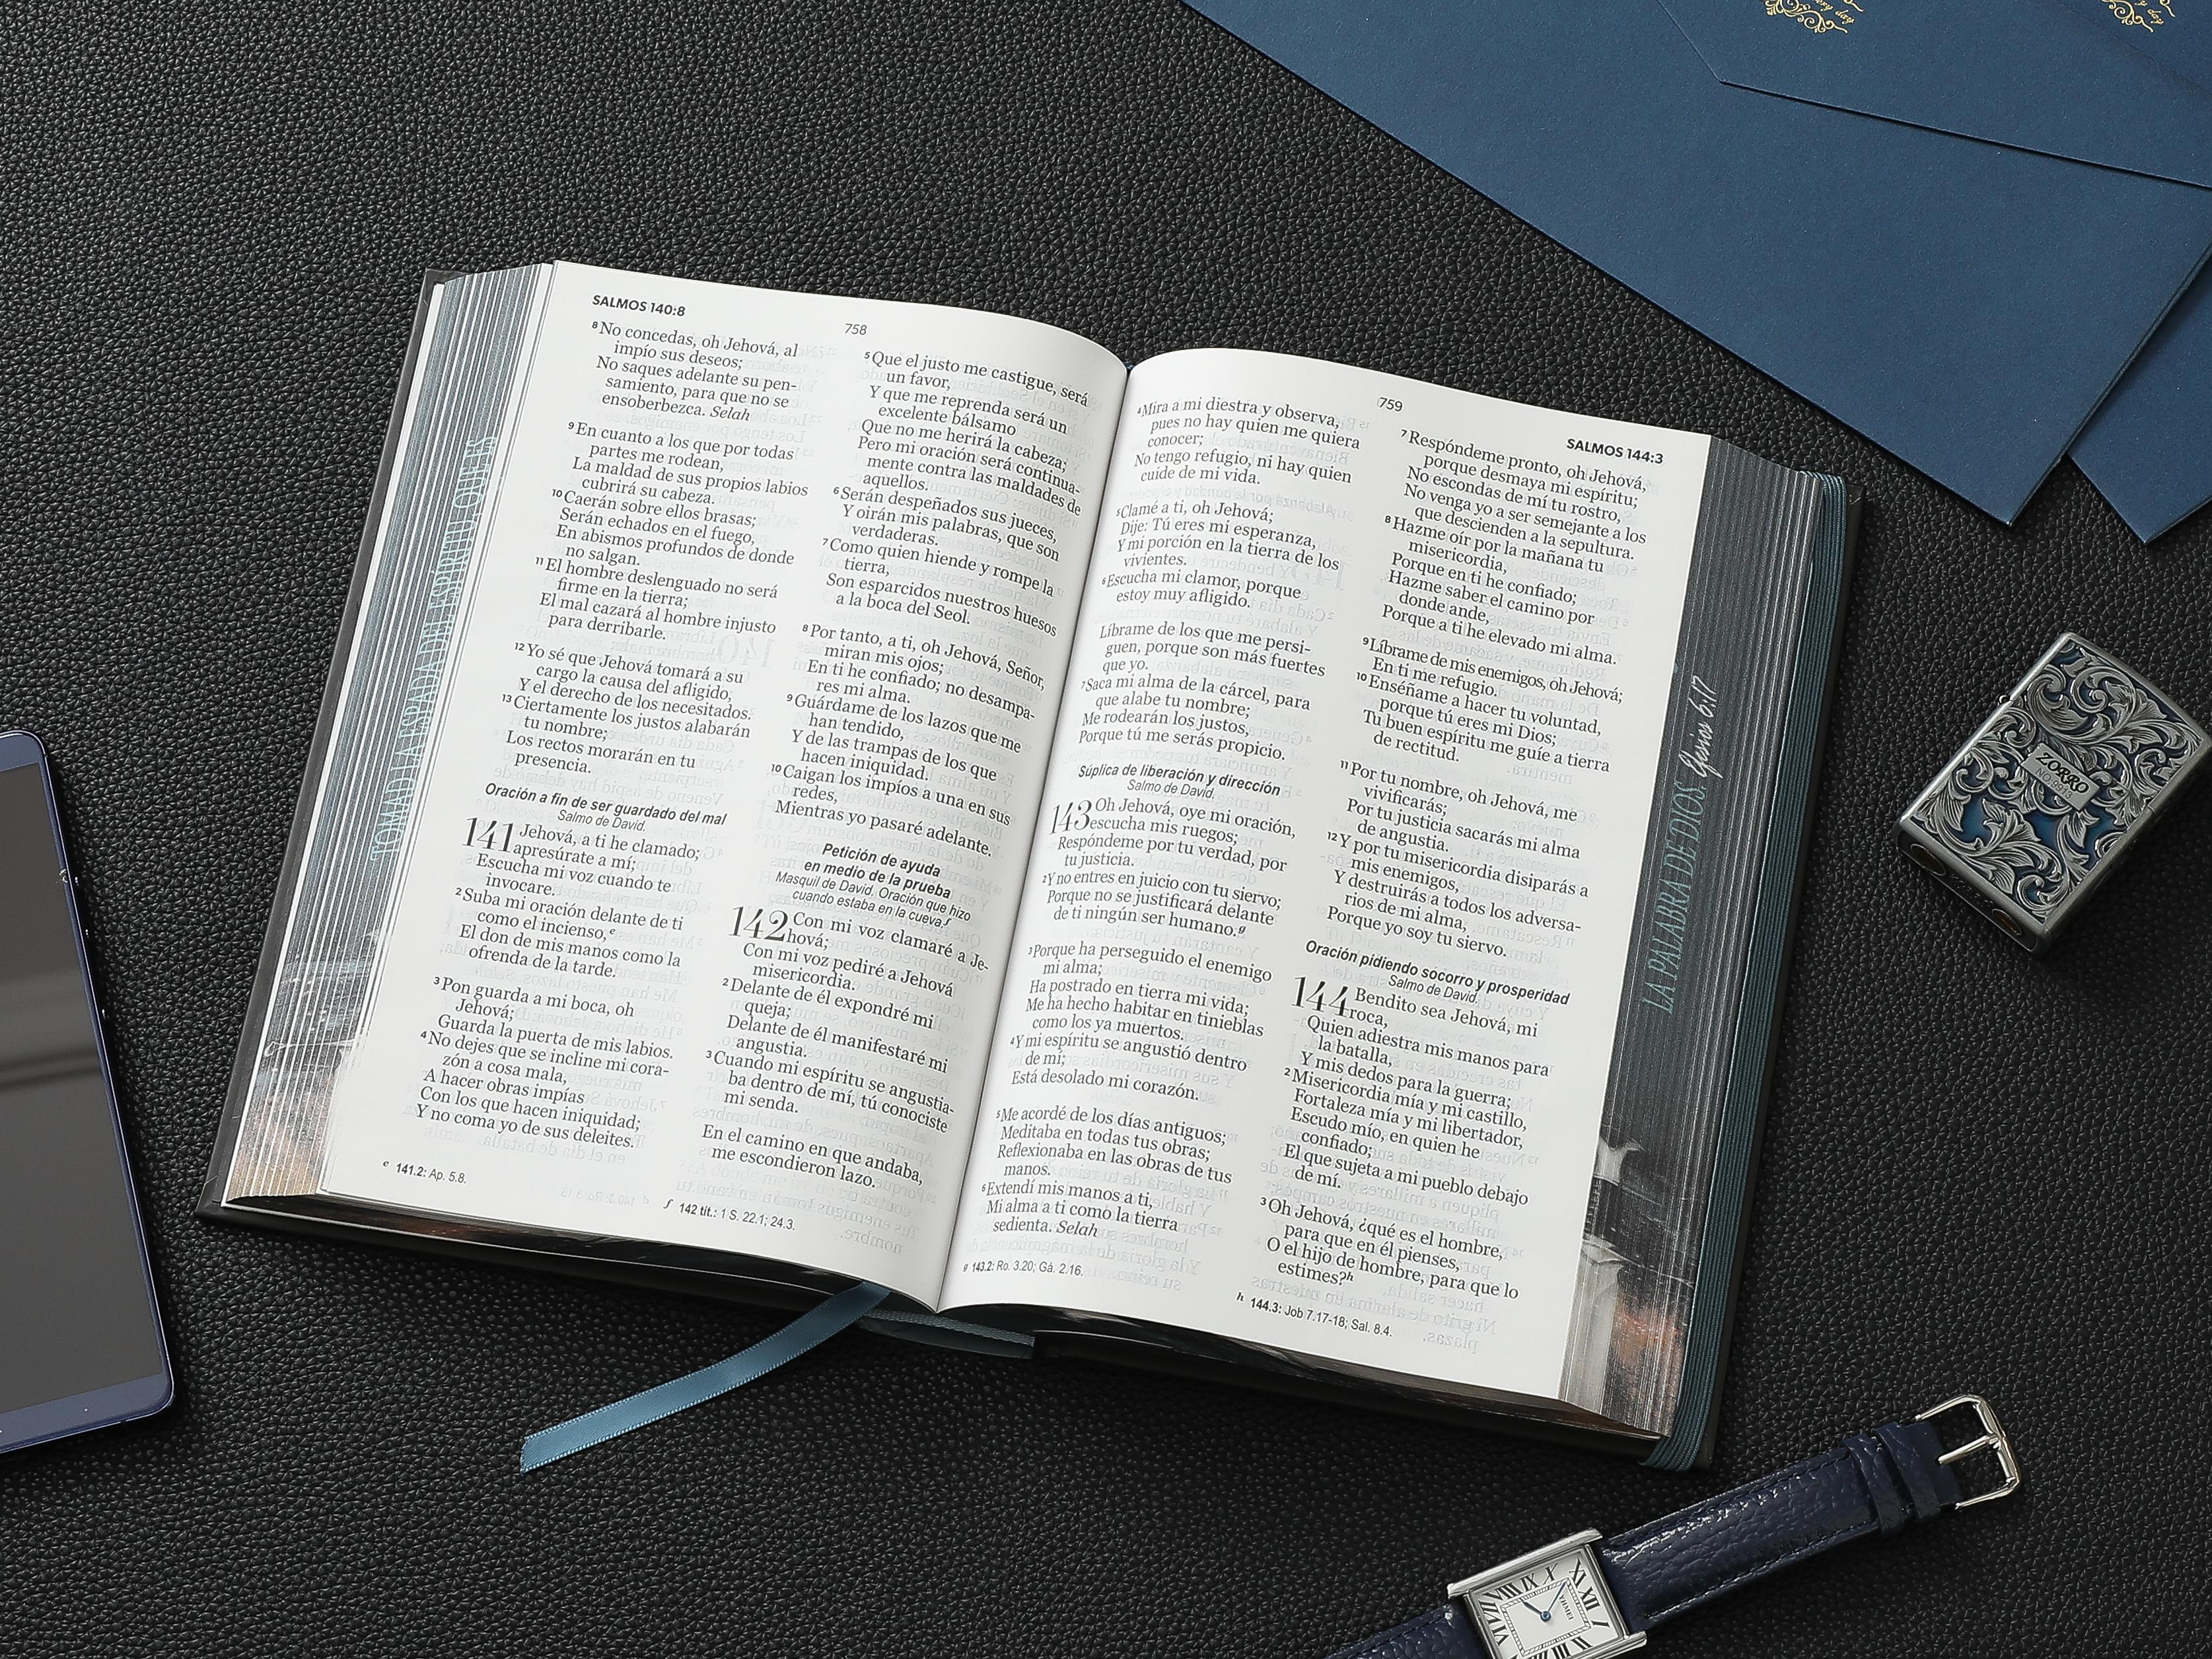 SALMOS 140:8
758
⁸No concedas, oh Jehová, al
impío sus deseos;
No saques adelante su pen-
samiento, para que no se
ensoberbezca. Selah
⁹En cuanto a los que por todas
partes me rodean,
La maldad de sus propios labios
cubrirá su cabeza.
¹⁰Caerán sobre ellos brasas;
Serán echados en el fuego,
En abismos profundos de donde
no salgan.
¹¹El hombre deslenguado no será
firme en la tierra;
El mal cazará al hombre injusto
para derribarle.
¹²Yo sé que Jehová tomará a su
cargo la causa del afligido,
Y el derecho de los necesitados.
¹³Ciertamente los justos alabarán
tu nombre;
Los rectos morarán en tu
presencia.
Oración a fin de ser guardado del mal
Salmo de David.
141 Jehová, a ti he clamado;
apresúrate a mí;
Escucha mi voz cuando te
invocare.
²Suba mi oración delante de ti
como el incienso,ᵉ
El don de mis manos como la
ofrenda de la tarde.
³Pon guarda a mi boca, oh
Jehová;
Guarda la puerta de mis labios.
⁴No dejes que se incline mi cora-
zón a cosa mala,
A hacer obras impías
Con los que hacen iniquidad;
Y no coma yo de sus deleites.
ᵉ 141.2: Ap. 5.8.
⁵Que el justo me castigue, será
un favor,
Y que me reprenda será un
excelente bálsamo
Que no me herirá la cabeza;
Pero mi oración será continua-
mente contra las maldades de
aquellos.
⁶Serán despeñados sus jueces,
Y oirán mis palabras, que son
verdaderas.
⁷Como quien hiende y rompe la
tierra,
Son esparcidos nuestros huesos
a la boca del Seol.
⁸Por tanto, a ti, oh Jehová, Señor,
miran mis ojos;
En ti he confiado; no desampa-
res mi alma.
⁹Guárdame de los lazos que me
han tendido,
Y de las trampas de los que
hacen iniquidad.
¹⁰Caigan los impíos a una en sus
redes,
Mientras yo pasaré adelante.
Petición de ayuda
en medio de la prueba
Masquil de David. Oración que hizo
cuando estaba en la cueva.ᶠ
142 Con mi voz clamaré a Je-
hová;
Con mi voz pediré a Jehová
misericordia.
²Delante de él expondré mi
queja;
Delante de él manifestaré mi
angustia.
³Cuando mi espíritu se angustia-
ba dentro de mí, tú conociste
mi senda.
En el camino en que andaba,
me escondieron lazo.
ᶠ 142 tít.: 1 S. 22.1; 24.3.
759
SALMOS 144:3
⁴Mira a mi diestra y observa,
pues no hay quien me quiera
conocer;
No tengo refugio, ni hay quien
cuide de mi vida.
⁵Clamé a ti, oh Jehová;
Dije: Tú eres mi esperanza,
Y mi porción en la tierra de los
vivientes.
⁶Escucha mi clamor, porque
estoy muy afligido.
Líbrame de los que me persi-
guen, porque son más fuertes
que yo.
⁷Saca mi alma de la cárcel, para
que alabe tu nombre;
Me rodearán los justos,
Porque tú me serás propicio.
Súplica de liberación y dirección
Salmo de David.
143 Oh Jehová, oye mi oración,
escucha mis ruegos;
Respóndeme por tu verdad, por
tu justicia.
²Y no entres en juicio con tu siervo;
Porque no se justificará delante
de ti ningún ser humano.ᵍ
³Porque ha perseguido el enemigo
mi alma;
Ha postrado en tierra mi vida;
Me ha hecho habitar en tinieblas
como los ya muertos.
⁴Y mi espíritu se angustió dentro
de mí;
Está desolado mi corazón.
⁵Me acordé de los días antiguos;
Meditaba en todas tus obras;
Reflexionaba en las obras de tus
manos.
⁶Extendí mis manos a ti,
Mi alma a ti como la tierra
sedienta. Selah
ᵍ 143.2: Ro. 3.20; Gá. 2.16.
⁷Respóndeme pronto, oh Jehová,
porque desmaya mi espíritu;
No escondas de mí tu rostro,
No venga yo a ser semejante a los
que descienden a la sepultura.
⁸Hazme oír por la mañana tu
misericordia,
Porque en ti he confiado;
Hazme saber el camino por
donde ande,
Porque a ti he elevado mi alma.
⁹Líbrame de mis enemigos, oh Jehová;
En ti me refugio.
¹⁰Enséñame a hacer tu voluntad,
porque tú eres mi Dios;
Tu buen espíritu me guíe a tierra
de rectitud.
¹¹Por tu nombre, oh Jehová, me
vivificarás;
Por tu justicia sacarás mi alma
de angustia.
¹²Y por tu misericordia disiparás a
mis enemigos,
Y destruirás a todos los adversa-
rios de mi alma,
Porque yo soy tu siervo.
Oración pidiendo socorro y prosperidad
Salmo de David.
144 Bendito sea Jehová, mi
roca,
Quien adiestra mis manos para
la batalla,
Y mis dedos para la guerra;
²Misericordia mía y mi castillo,
Fortaleza mía y mi libertador,
Escudo mío, en quien he
confiado;
El que sujeta a mi pueblo debajo
de mí.
³Oh Jehová, ¿qué es el hombre,
para que en él pienses,
O el hijo de hombre, para que lo
estimes?ʰ
ʰ 144.3: Job 7.17-18; Sal. 8.4.
TOMAD LA ESPADA DEL ESPÍRITU, QUE ES
LA PALABRA DE DIOS. Efesios 6:17
ZORRO